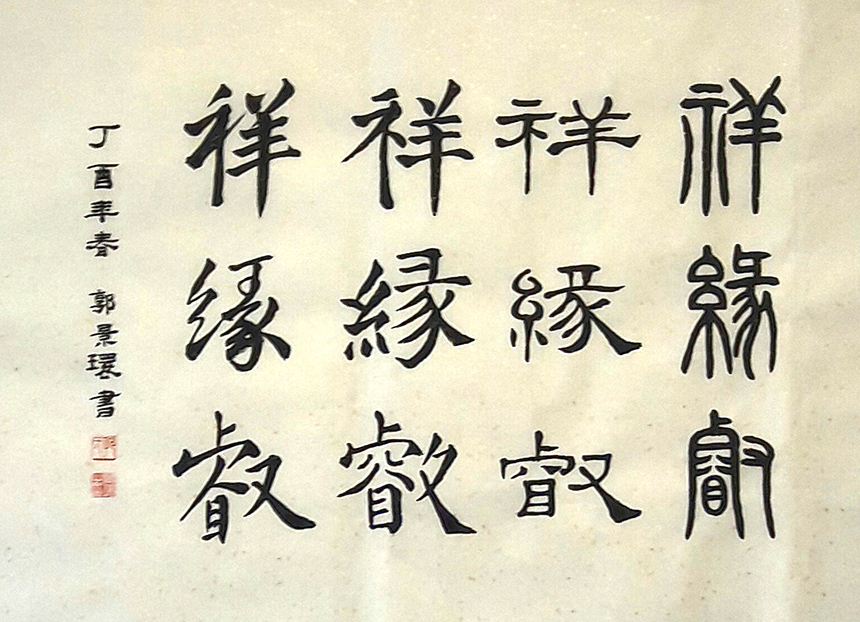 祥緣叡
祥緣叡
祥緣叡
祥缘叡
丁酉年春 郭景環書